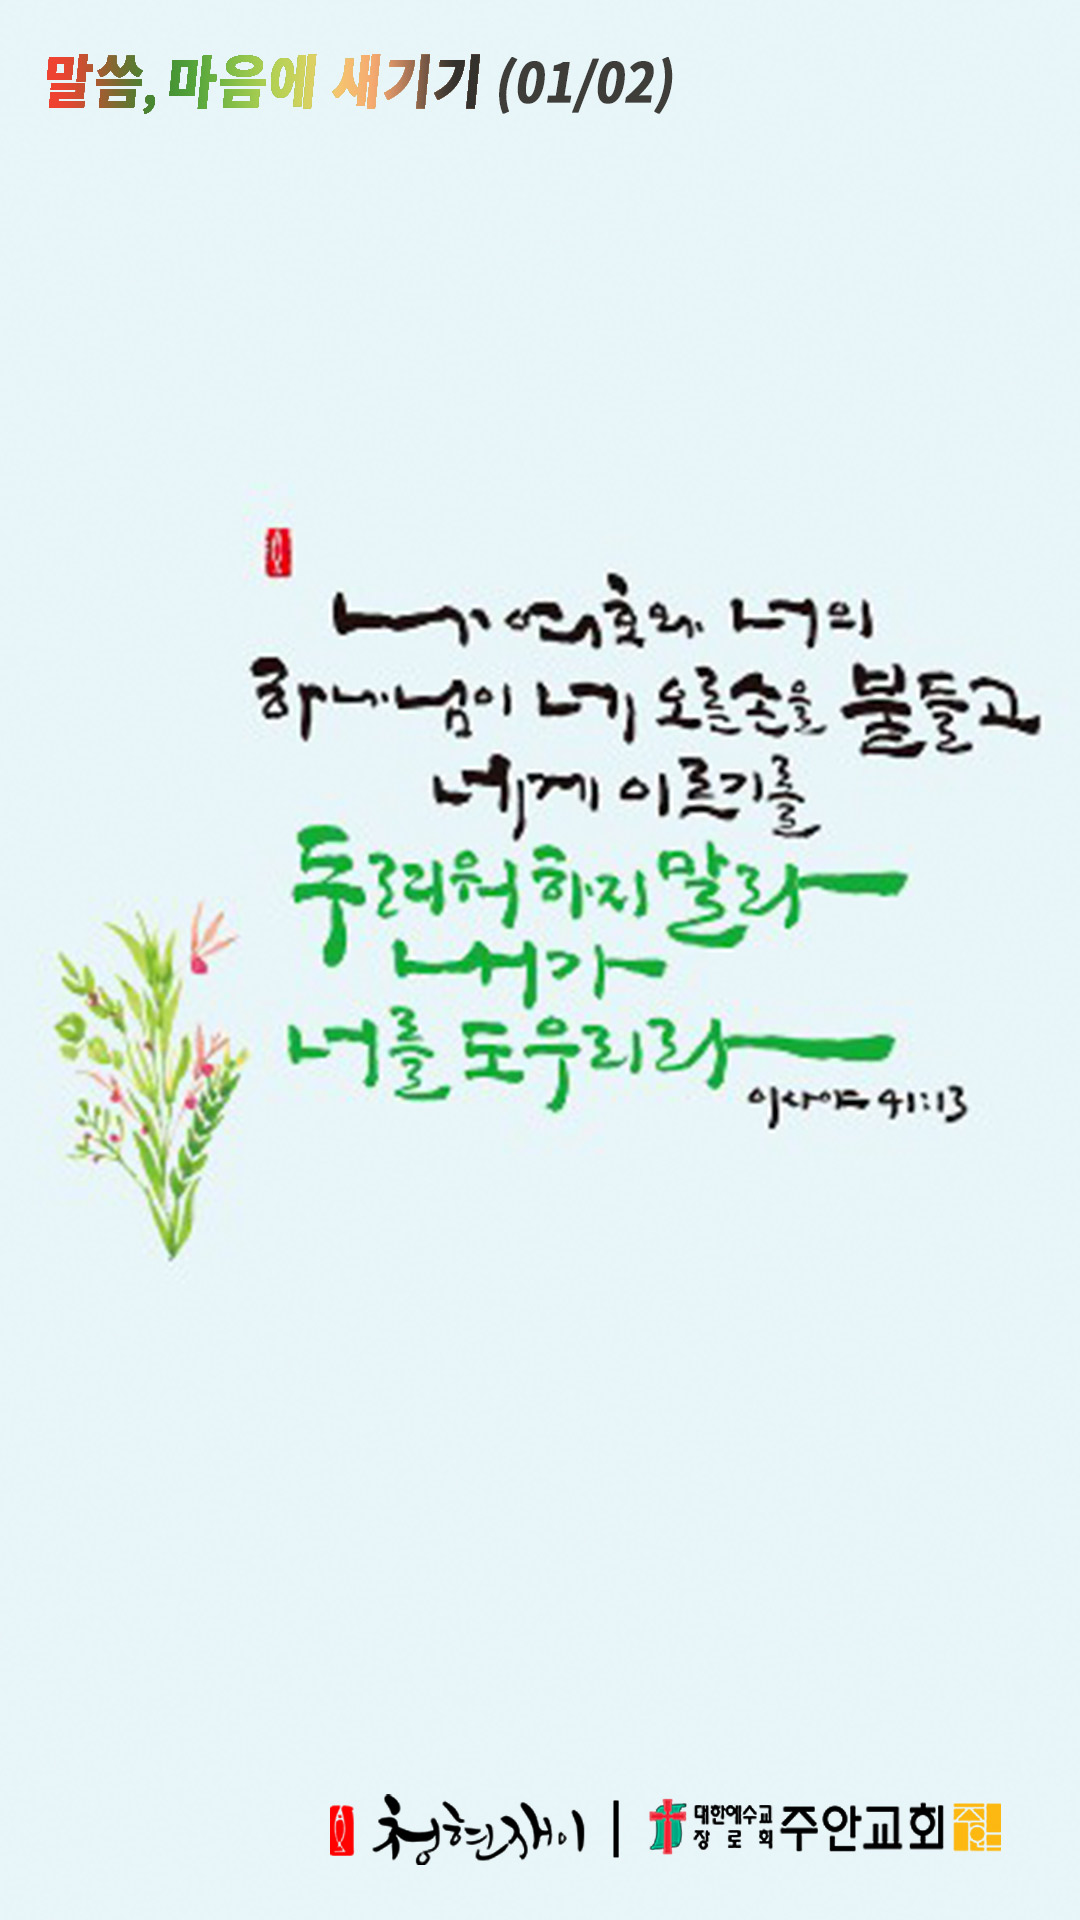 말씀, 마음에 새기기 (01/02)
나 여호와 너의
하나님이 네 오른손을 붙들고
네게 이르기를
두려워하지 말라
내가
너를 도우리라
이사야 41:13
청현재이
대한예수교
장로회
주안교회
주안